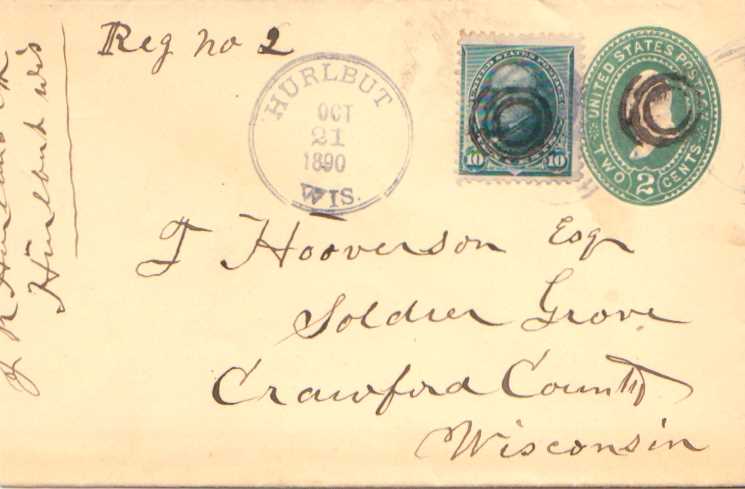 Reg no 2
HURLBUT
OCT
21
1890
WIS.
UNITED STATES POSTAGE
10 10
UNITED STATES POSTAGE
TWO 2 CENTS
T Hooverson Esq
Soldier Grove
Crawford County
Wisconsin
Hurlbut Wis